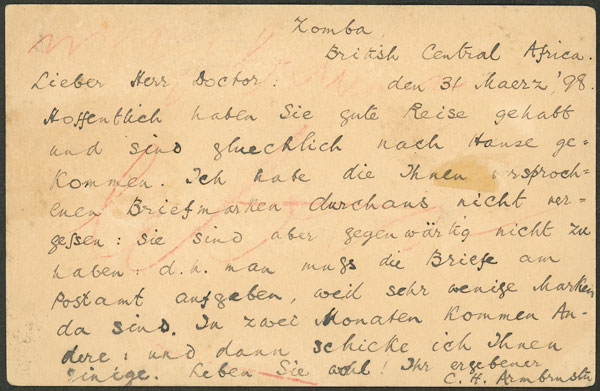 Zomba,
British Central Africa.
Lieber Herr Doctor: den 31 Maerz '98.
Hoffentlich haben Sie gute Reise gehabt
und sind gluechlich nach Hause ge-
kommen. Ich habe die Ihnen versproch-
enen Briefmarken durchaus nicht ver-
gessen: sie sind aber gegenwärtig nicht zu
haben: d.h. man muss die Briefe am
Postamt aufgeben, weil sehr wenige Marken
da sind. In zwei Monaten kommen An-
dere: und dann schicke ich Ihnen
einige. Leben Sie wohl! Ihr ergebener
C. H. Armbruster